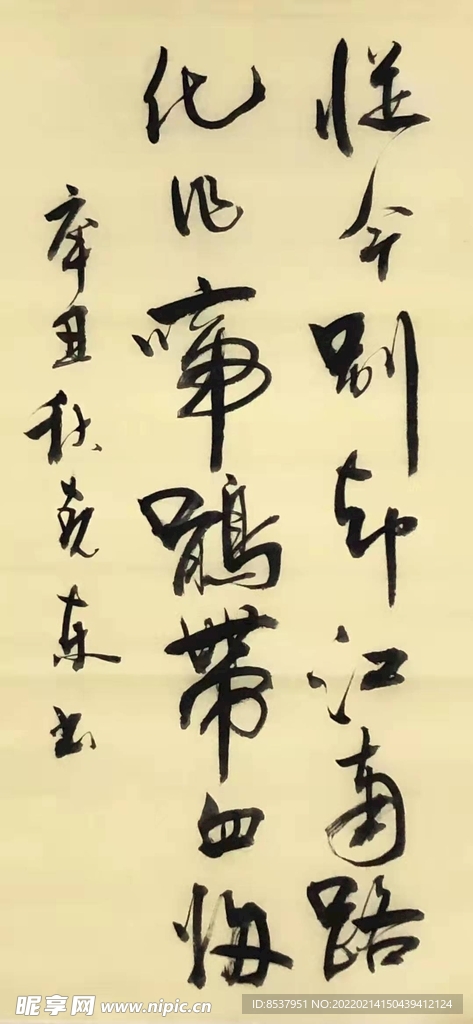 從今別却江南路
化作啼鵑帶血歸
辛丑秋堯东书
昵享网 www.nipic.cn
ID:8537951 NO:20220214150439412124